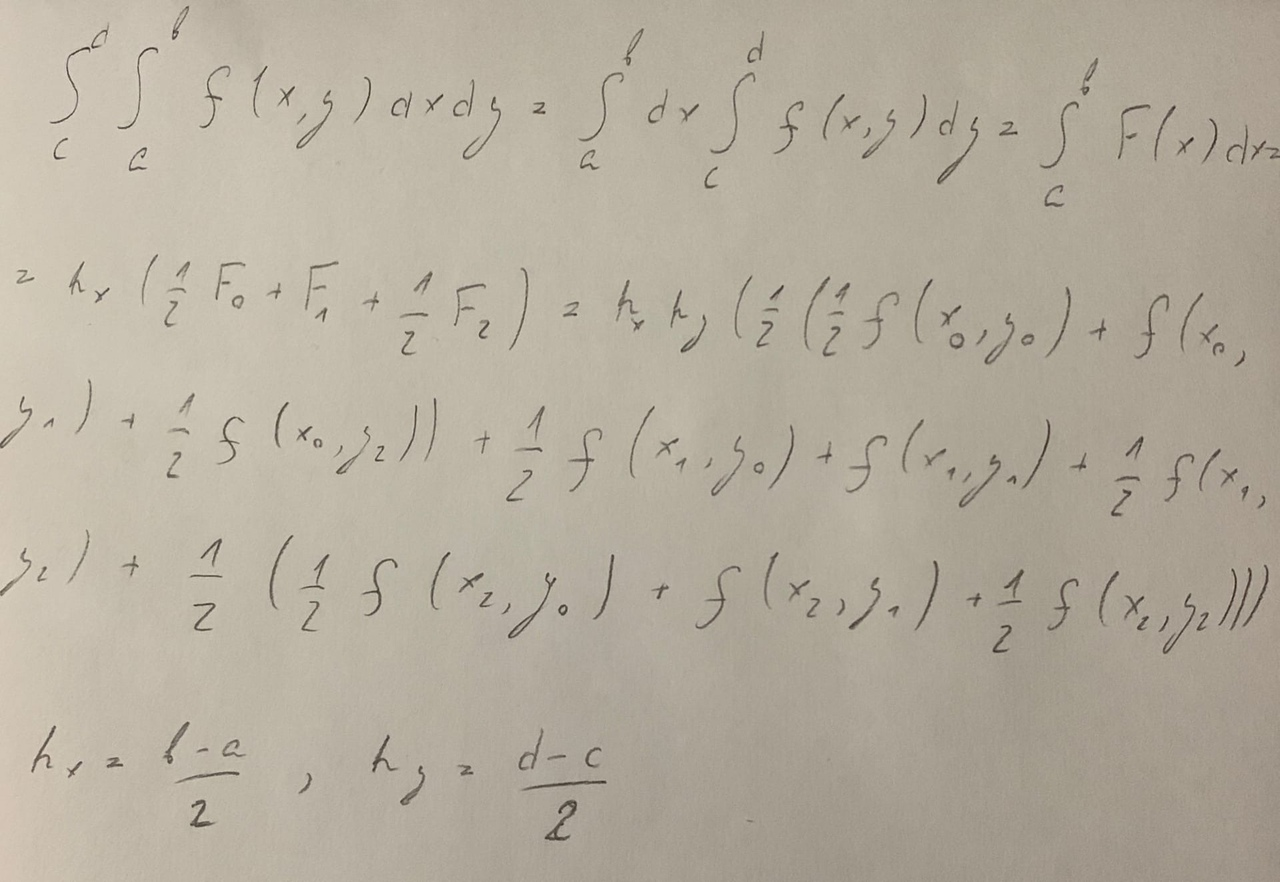 ∫_c^d ∫_a^b f(x,y)dxdy = ∫_a^b dx ∫_c^d f(x,y)dy = ∫_a^b F(x)dx =
= h_x (1/2 F_0 + F_1 + 1/2 F_2) = h_x h_y (1/2 (1/2 f(x_0,y_0) + f(x_0,
y_1) + 1/2 f(x_0,y_2)) + 1/2 f(x_1,y_0) + f(x_1,y_1) + 1/2 f(x_1,
y_2) + 1/2 (1/2 f(x_2,y_0) + f(x_2,y_1) + 1/2 f(x_2,y_2)))
h_x = (b-a)/2, h_y = (d-c)/2